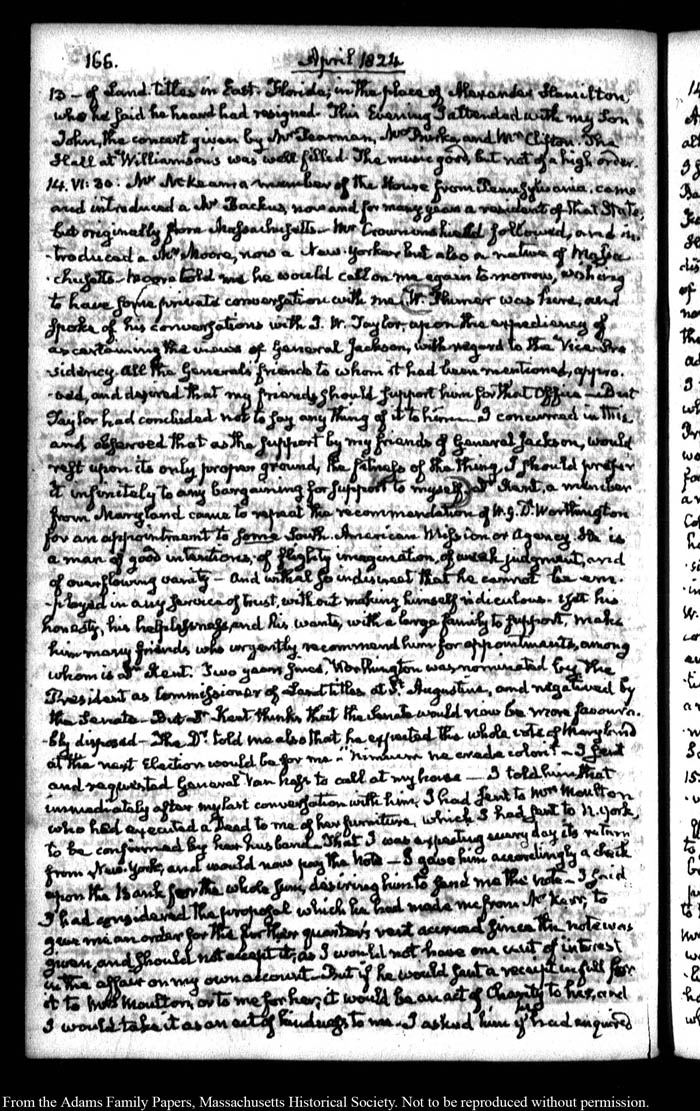 166. April 1824
13 — of Land titles in East Florida; in the place of Alexander Hamilton,
who he said he heard had resigned. This Evening I attended with my Son
John, the concert given by Mr Pearman, Mrs Burke, and Mrs Clifton. The
Hall at Williamsons was well filled. The music good, but not of a high order.
14. VI: 30. Mr McKean a member of the House from Pennsylvania, came
and introduced a Mr Backus, now and for many years a resident of that State,
but originally from Massachusetts — Mr Crowninshield followed, and in-
-troduced a Mr Moore, now a New-Yorker but also a native of Massa-
-chusetts — Moore told me he would call on me again tomorrow, wishing
to have some private conversation with me. W. Plumer was here, and
spoke of his conversations with J. W. Taylor, upon the expediency of
ascertaining the views of General Jackson, with regard to the Vice-Pre-
sidency. All the General's friends to whom it had been mentioned, appro-
-ved, and desired that my friends should support him for that Office — But
Taylor had concluded not to say any thing of it to him — I concurred in this
and observed that as the support by my friends of General Jackson, would
rest upon its only proper ground, the fitness of the thing, I should prefer
it infinitely to any bargaining for support to myself. Dr Kent, a member
from Maryland came to repeat the recommendation of W. G. D. Worthington
for an appointment to some South-American Mission or Agency. He is
a man of good intentions, of flighty imagination, of weak judgment, and
of overflowing vanity — And withal so indiscreet that he cannot be em-
-ployed in any service of trust, without making himself ridiculous. Yet his
honesty, his helplessness, and his wants, with a large family to support, make
him many friends who urgently recommend him for appointments, among
whom is Dr Kent. Two years since, Worthington was nominated by the
President as Commissioner of Land titles at St. Augustine, and negatived by
the Senate — But Dr Kent thinks that the Senate would now be more favoura-
-bly disposed — The Dr told me also that he expected the whole vote of Maryland
at the next Election would be for me — "nimium ne crede colori" — I sent
and requested General Van Ness to call at my house — I told him that
immediately after my last conversation with him, I had sent to Mrs Moulton
who had executed a Deed to me of her furniture, which I had sent to N. York,
to be confirmed by her husband — That I was expecting every day its return
from New-York, and would now pay the Note — I gave him accordingly a check
upon the Bank for the whole sum, desiring him to send me the note — I said
I had considered the proposal which he had made me from Mr Kerr, to
give me an order for the further quarter's rent accrued since the note was
given, and should not accept it; as I would not have one cent of interest
in the affair on my own account — But if he would send a receipt in full for
it to Mrs Moulton, or to me for her, it would be an act of Charity to her, and
I would take it as an act of kindness to me — I asked him if he had enquired
From the Adams Family Papers, Massachusetts Historical Society. Not to be reproduced without permission.